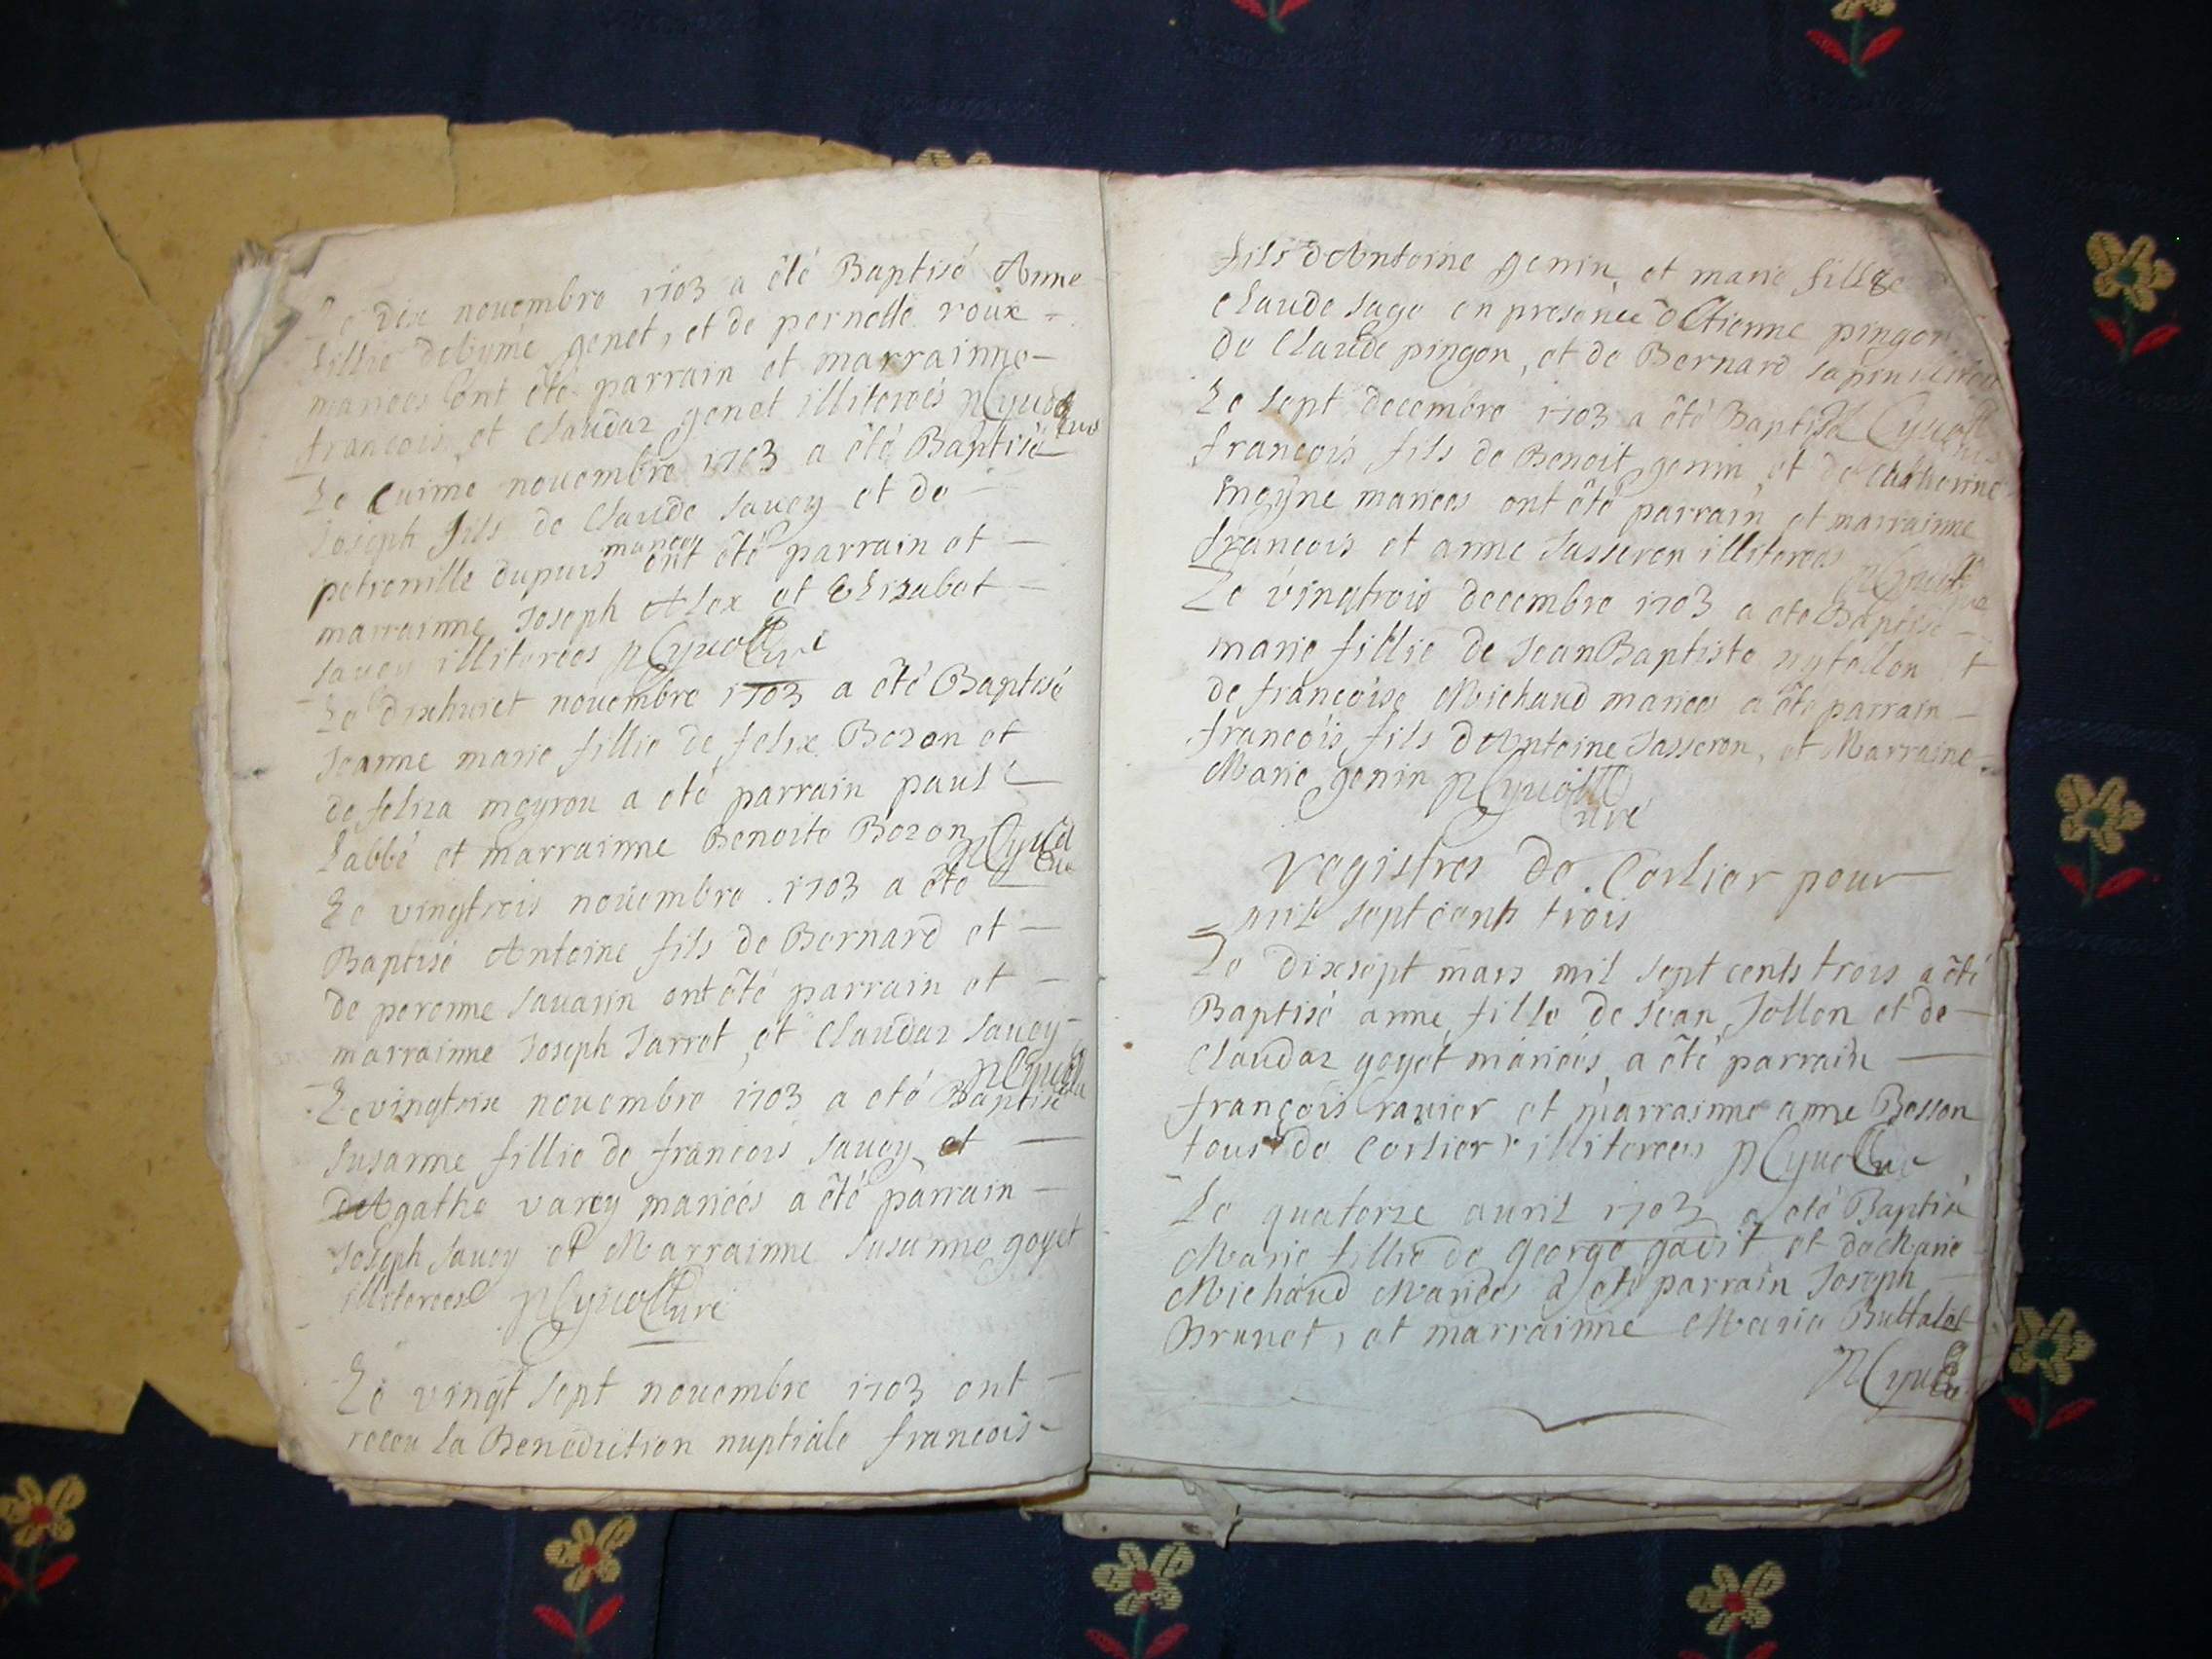 Le dix novembre 1703 a êté Baptisé Anne
fillie debymé genet, et de pernette roux
mariees ont êté parrain et marrainne
francois et Claudaz genet illiterées
Le novembre 1703 a êté Baptisé
Joseph fils de Claude Savey et de
petronille dupuis mariees ont êté parrain et
marrainne Joseph Alex et Elizabet
Savey illiterées
Le dixhuict novembre 1703 a êté Baptisé
Jeanne marie fillie de felix Bozon et
de feliza meyrou a eté parrain paul
Labbé et marrainne Benoite Bozon
Le vingtrois novembre 1703 a êté
Baptisé Antoine fils de Bernard et
de peronne Savarin ont êté parrain et
marrainne Joseph Jarret et Claudaz Savey
Le vingtsix novembre 1703 a eté Baptisé
Susanne fillie de francois Savey et
deAgathe varey mariées a êté parrain
Joseph Savey et Marrainne Susanne goyet
illiterées
Le vingt sept novembre 1703 ont
receu la Benediction nuptiale francois
fils dAntoine genin et marie fillie
Claude Sage en presence dEtienne pingon
de Claude pingon, et de Bernard
Le Sept decembre 1703 a êté Baptisé
francois fils de Benoit genin et de Catherine
mariees ont êté parrain et marrainne
francois et anne Jasseron illiterées
Le vingtrois decembre 1703 a eté Baptisé
marie fillie de Jean Baptiste et
de francoise Michaud mariees a êté parrain
francois fils dAntoine Jasseron, et Marraine
Marie genin
registres de Corlier pour
mil sept cents trois
Le dixsept mars mil sept cents trois a êté
Baptisé anne fille de Jean Jollon et de
Claudaz goyet mariées a êté parrain
françois ravier et marrainne anne Besson
tous de Corlier illiterées
Le quatorze avril 1703 a eté Baptisé
Marie fillie de George gadit et deMarie
Michaud Mariées a eté parrain Joseph
Brunet, et marrainne Marie Buttalet